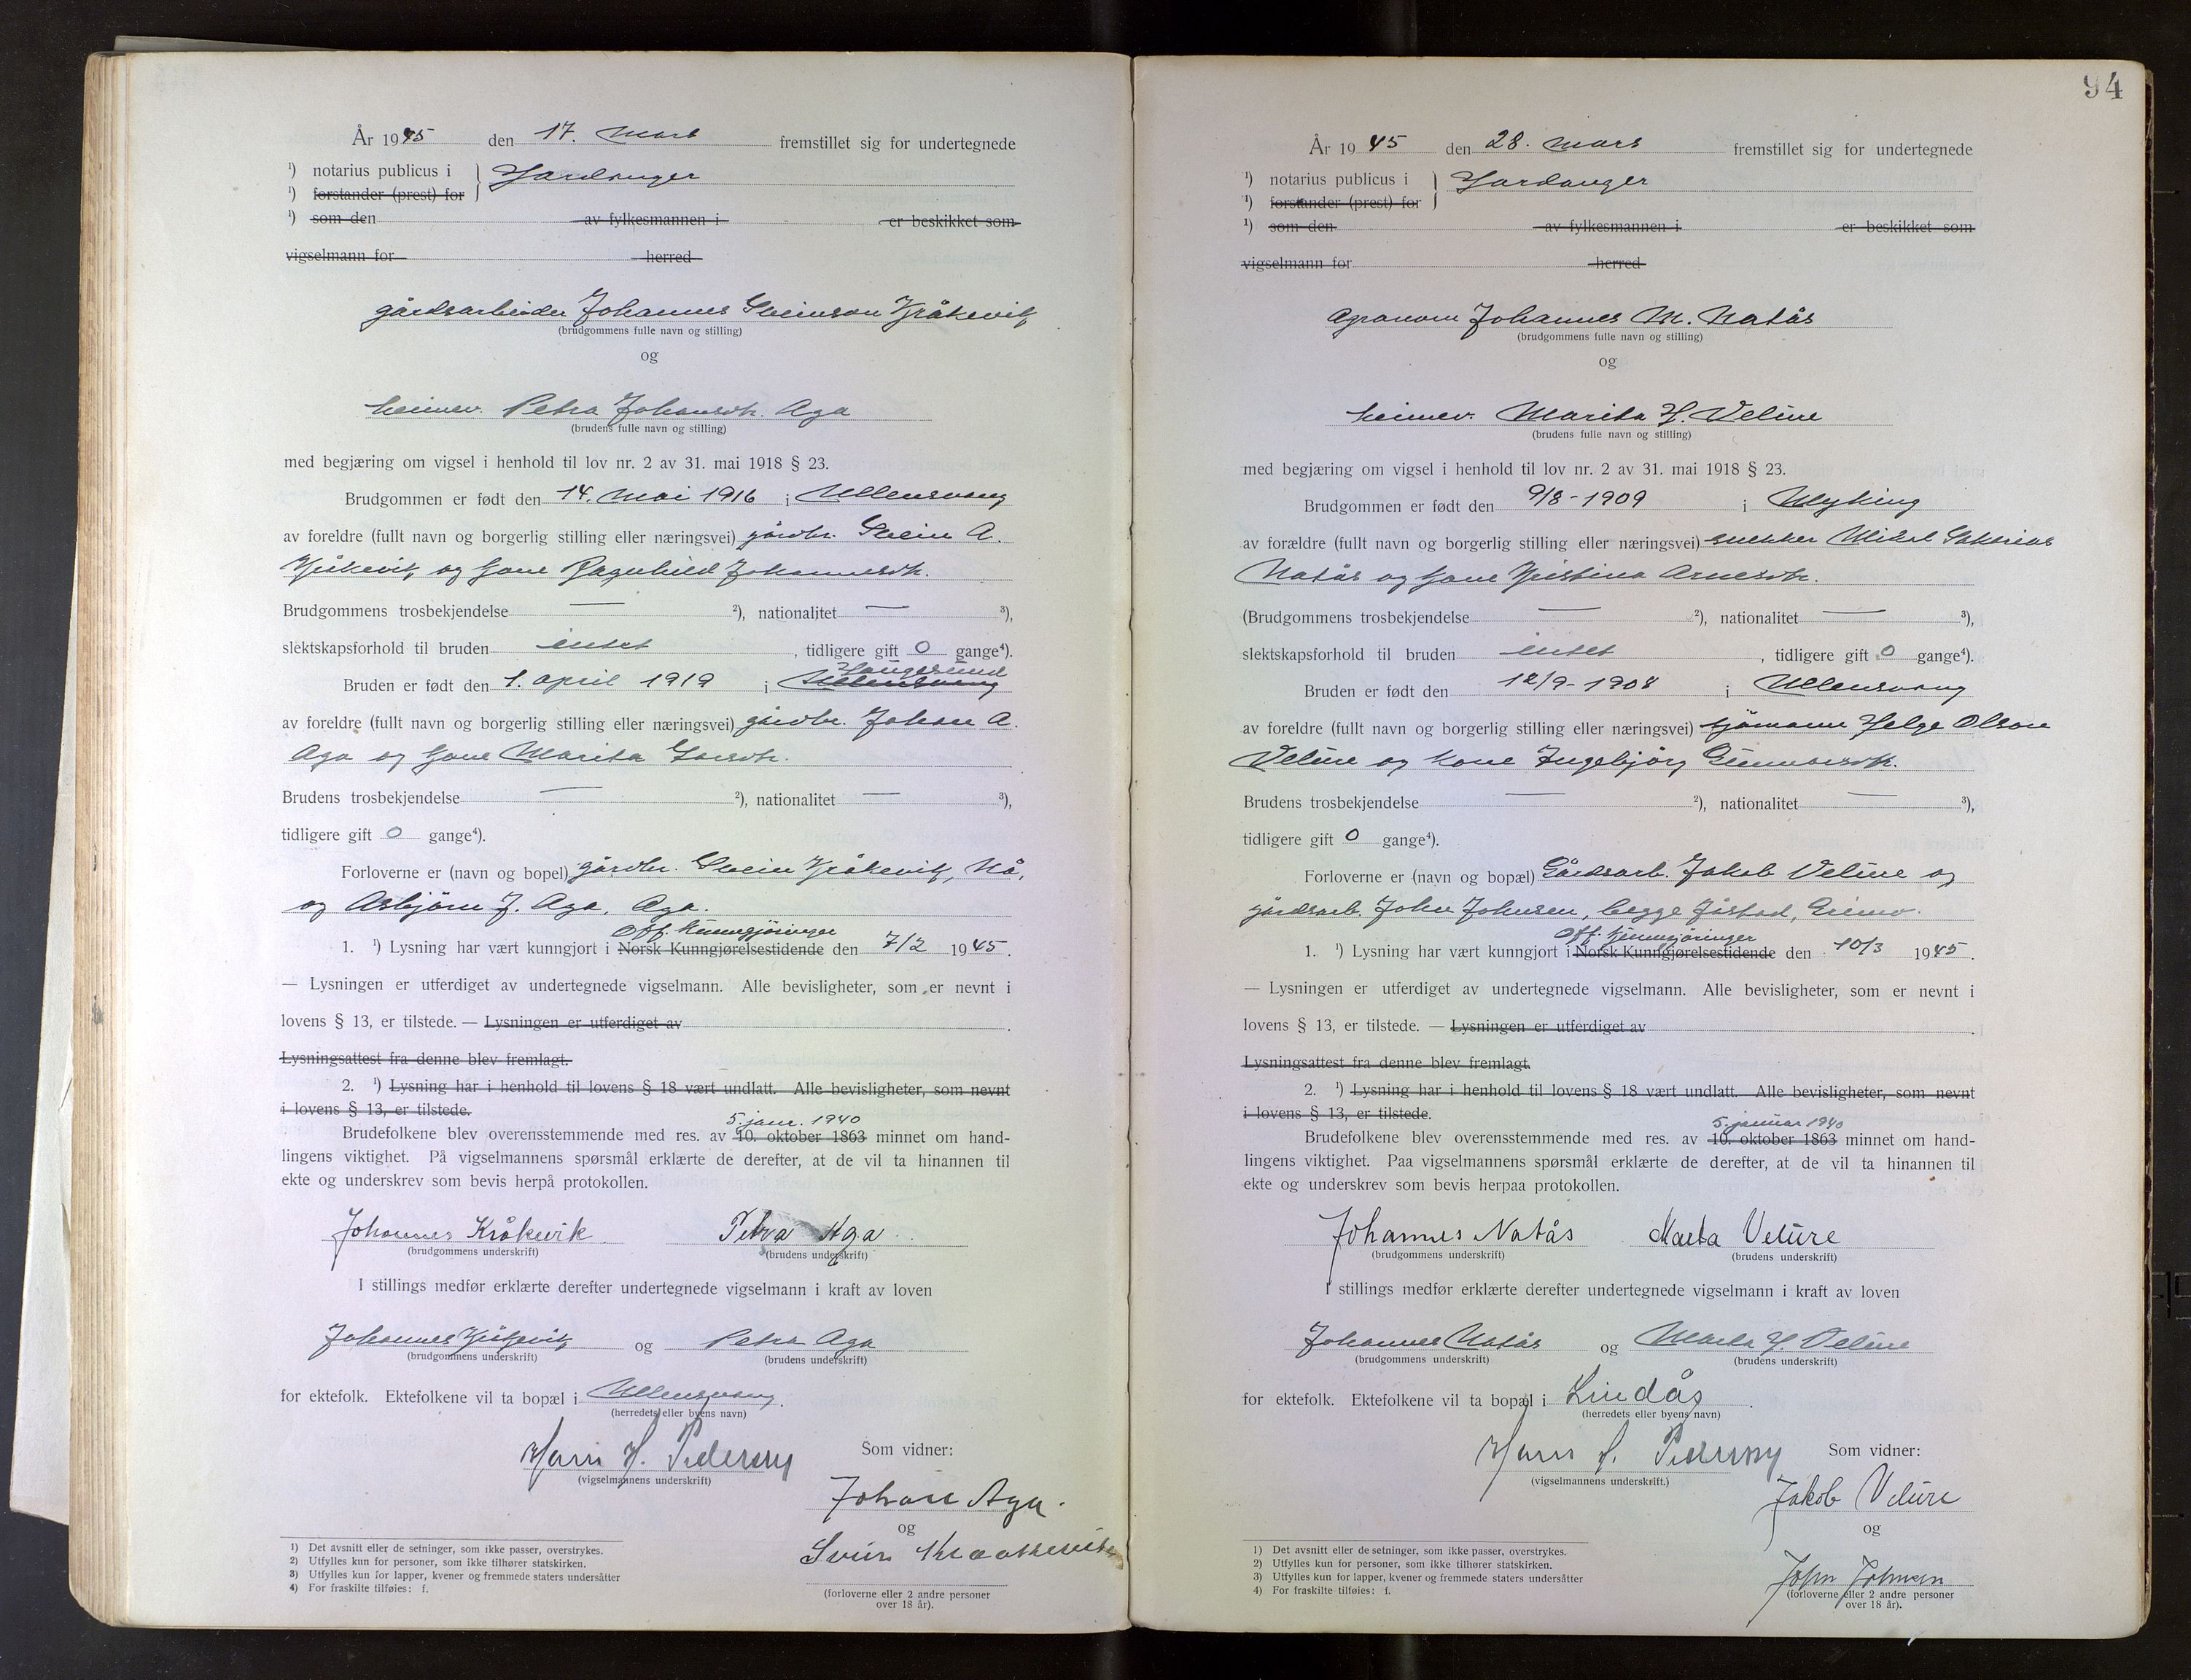 År 1945 den 17. Mars fremstillet sig for undertegnede
¹) notarius publicus i } Hardanger
¹) forstander (prest) for
¹) som den av fylkesmannen i er beskikket som
vigselmann for herred
gårdsarbeider Johannes Sveinson Kråkevik
(brudgommens fulle navn og stilling)
og
heimev. Petra Johansdtr. Aga
(brudens fulle navn og stilling)
med begjæring om vigsel i henhold til lov nr. 2 av 31. mai 1918 § 23.
Brudgommen er født den 14. mai 1916 i Ullensvang
av foreldre (fullt navn og borgerlig stilling eller næringsvei) gårdbr. Svein A.
Kråkevik og kone Ragnhild Johannesdtr.
Brudgommens trosbekjendelse — ²), nationalitet — ³),
slektskapsforhold til bruden intet , tidligere gift 0 gange⁴).
Haugesund
Bruden er født den 1. april 1919 i Ullensvang
av foreldre (fullt navn og borgerlig stilling eller næringsvei) gårdbr. Johan A.
Aga og kone Marita Larsdtr.
Brudens trosbekjendelse — ²), nationalitet — ³),
tidligere gift 0 gange⁴).
Forloverne er (navn og bopel) gårdbr. Svein Kråkevik, Nå,
og Asbjørn J. Aga, Aga.
Off. Kunngjøringer
1. ¹) Lysning har vært kunngjort i Norsk Kunngjørelsestidende den 7/2 1945.
— Lysningen er utferdiget av undertegnede vigselmann. Alle bevisligheter, som er nevnt i
lovens § 13, er tilstede. — Lysningen er utferdiget av .
Lysningsattest fra denne blev fremlagt.
2. ¹) Lysning har i henhold til lovens § 18 vært undlatt. Alle bevisligheter, som nevnt
i lovens § 13, er tilstede.
5. janr. 1940
Brudefolkene blev overensstemmende med res. av 10. oktober 1863 minnet om hand-
lingens viktighet. På vigselmannens spørsmål erklærte de derefter, at de vil ta hinannen til
ekte og underskrev som bevis herpå protokollen.
Johannes Kråkevik Petra Aga
(brudgommens underskrift) (brudens underskrift)
I stillings medfør erklærte derefter undertegnede vigselmann i kraft av loven
Johannes Kråkevik og Petra Aga
(brudgommens underskrift) (brudens underskrift)
for ektefolk. Ektefolkene vil ta bopæl i Ullensvang.
(herredets eller byens navn)
Hans H. Pedersen Som vidner:
(vigselmannens underskrift)
Johan Aga.
og
Svein Kraakevik
(forloverne eller 2 andre personer
over 18 år).
1) Det avsnitt eller de setninger, som ikke passer, overstrykes.
2) Utfylles kun for personer, som ikke tilhører statskirken.
3) Utfylles kun for lapper, kvener og fremmede staters undersåtter
4) For fraskilte tilføies: f.
94
År 1945 den 28. mars fremstillet sig for undertegnede
¹) notarius publicus i } Hardanger
¹) forstander (prest) for
¹) som den av fylkesmannen i er beskikket som
vigselmann for herred
Agronom Johannes M. Natås
(brudgommens fulle navn og stilling)
og
heimev. Marita H. Velure
(brudens fulle navn og stilling)
med begjæring om vigsel i henhold til lov nr. 2 av 31. mai 1918 § 23.
Brudgommen er født den 9/8 - 1909 i
av forældre (fullt navn og borgerlig stilling eller næringsvei) snekker Mikal Sakarias
Natås og kone Kristina Arnesdtr.
(Brudgommens trosbekjendelse — ²), nationalitet — ³),
slektskapsforhold til bruden intet , tidligere gift 0 gange⁴).
Bruden er født den 12/9 - 1908 i Ullensvang
av foreldre (fullt navn og borgerlig stilling eller næringsvei) sjømann Helge Olson
Velure og kone Ingebjørg Gunnarsdtr.
Brudens trosbekjendelse — ²), nationalitet — ³),
tidligere gift 0 gange⁴).
Forloverne er (navn og bopæl) Gårdsarb. Jakob Velure og
gårdsarb. John Johnsen, begge Jåstad, Grimo.
Off. kunngjøringer
1. ¹) Lysning har vært kunngjort i Norsk Kunngjørelsestidende den 10/3 1945.
— Lysningen er utferdiget av undertegnede vigselmann. Alle bevisligheter, som er nevnt i
lovens § 13, er tilstede. — Lysningen er utferdiget av .
Lysningsattest fra denne blev fremlagt.
2. ¹) Lysning har i henhold til lovens § 18 vært undlatt. Alle bevisligheter, som nevnt
i lovens § 13, er tilstede.
5. januar 1940
Brudefolkene blev overensstemmende med res. av 10. oktober 1863 minnet om hand-
lingens viktighet. Paa vigselmannens spørsmål erklærte de derefter, at de vil ta hinannen til
ekte og underskrev som bevis herpaa protokollen.
Johannes Natås Marta Velure
(brudgommens underskrift) (brudens underskrift)
I stillings medfør erklærte derefter undertegnede vigselmann i kraft av loven
Johannes Natås og Marta H. Velure
(brudgommens underskrift) (brudens underskrift)
for ektefolk. Ektefolkene vil ta bopæl i Lindås.
(herredets eller byens navn)
Hans H. Pedersen Som vidner:
(vigselmannens underskrift.)
Jakob Velure
og
John Johnsen
(forloverne eller 2 andre personer
over 18 år).
1) Det avsnitt eller de setninger, som ikke passer, overstrykes.
2) Utfylles kun for personer, som ikke tilhører statskirken.
3) Utfylles kun for lapper, kvener og fremmede staters undersåtter
4) For fraskilte tilføies: f.